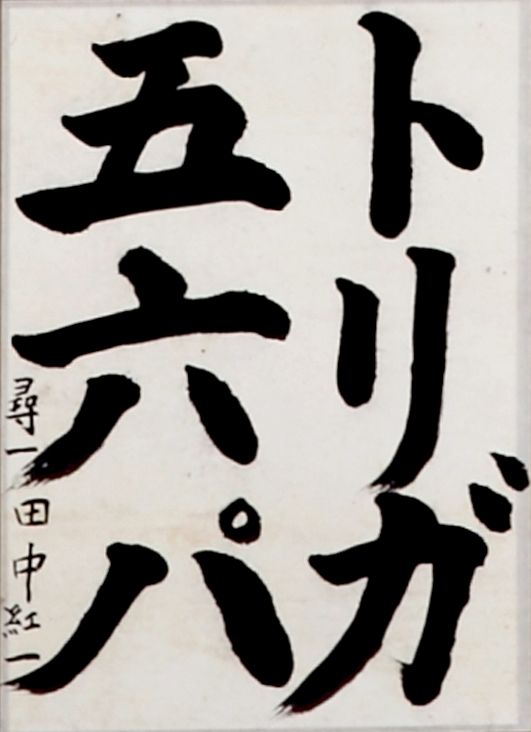 トリガ
五六パ
尋一田中紅一